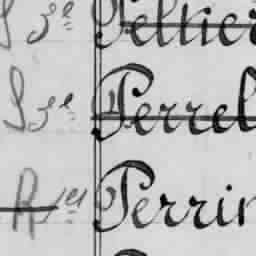 S 3e Peltier
S 3e Perrel
R 1er Perrin